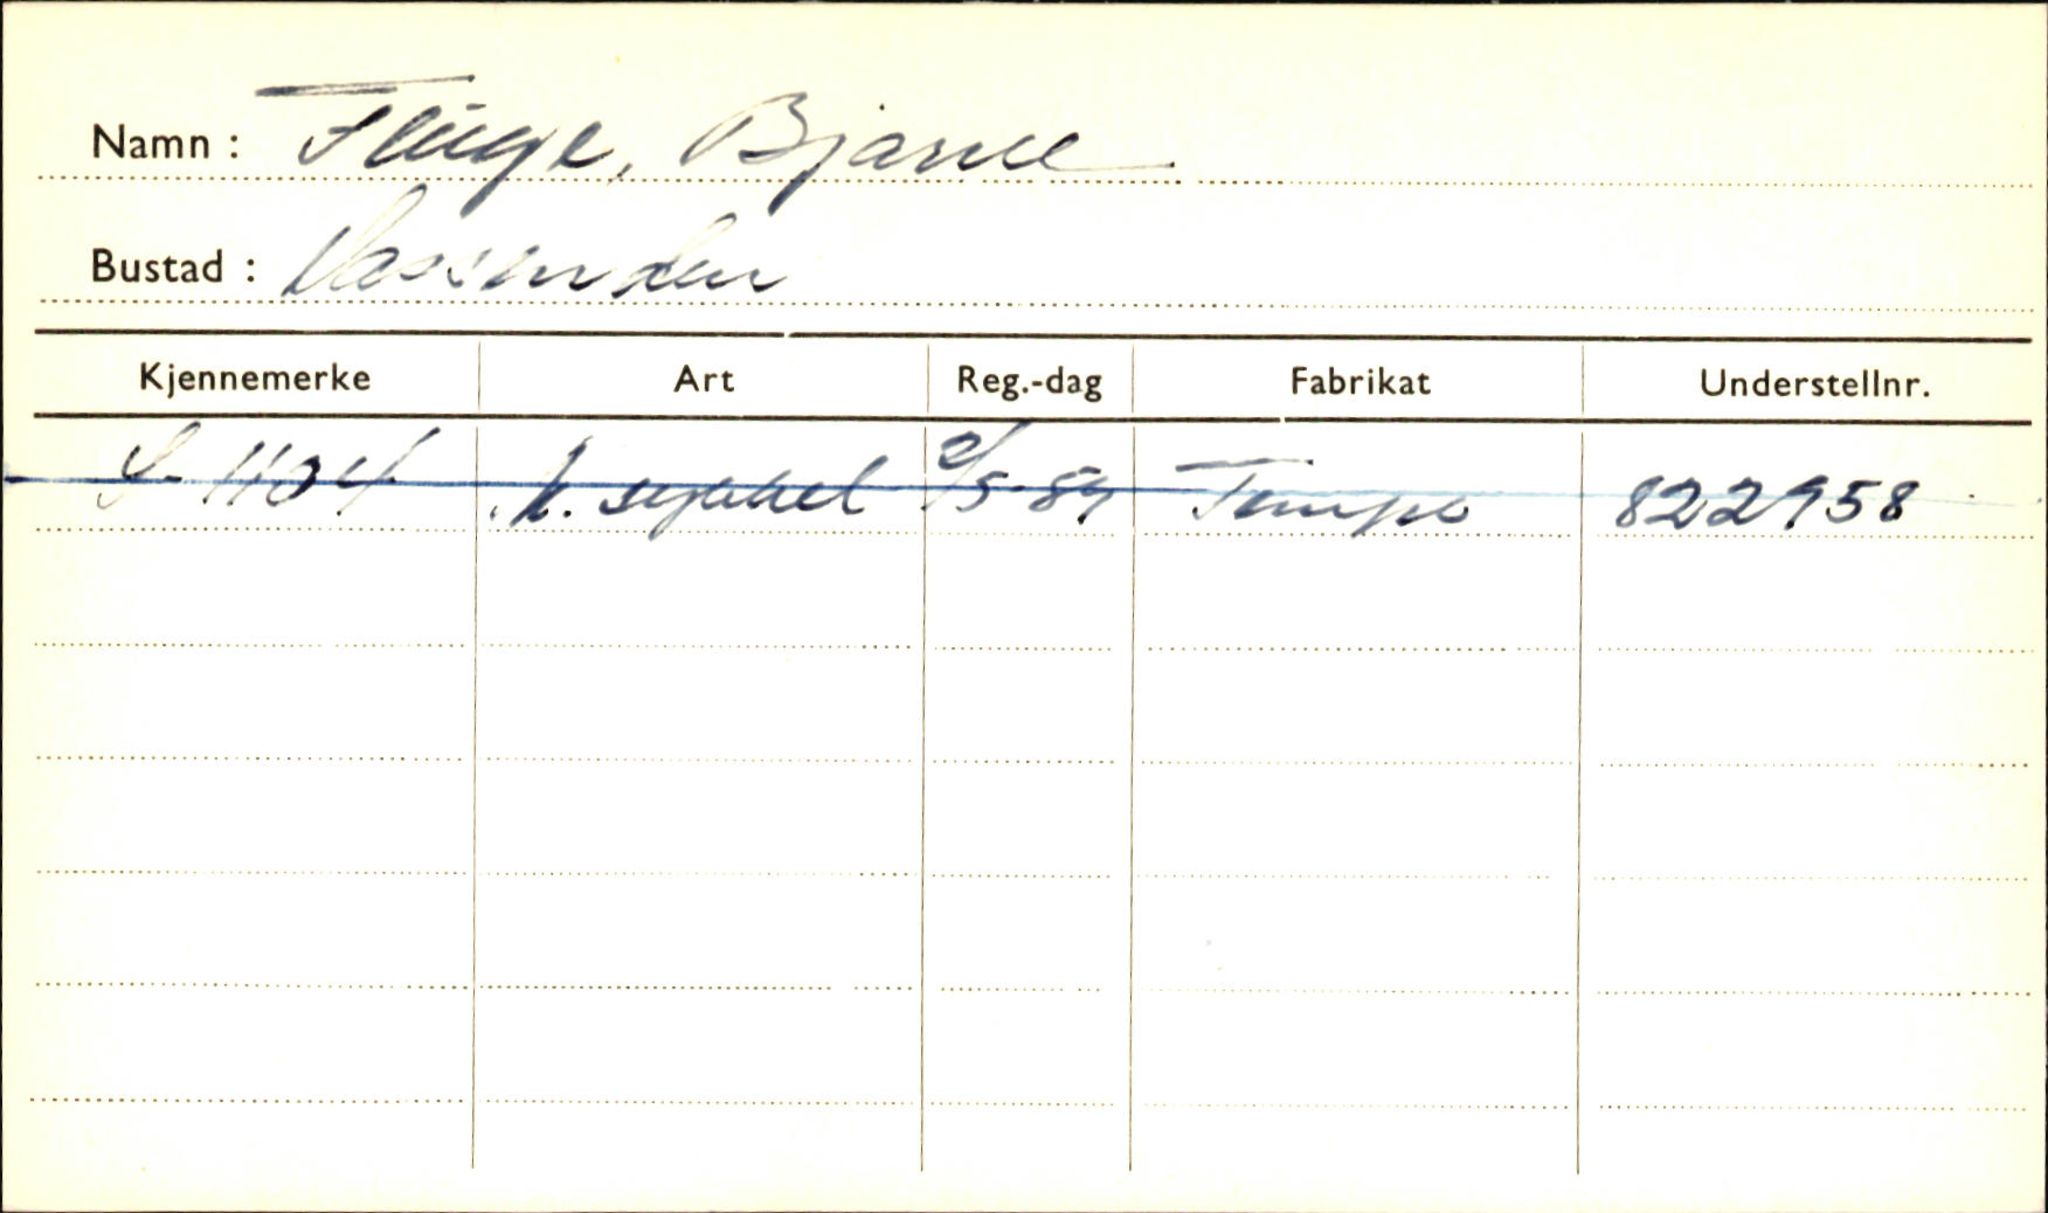 Namn : Fluge, Bjarne
Bustad : Vassenden
Kjennemerke Art Reg.-dag Fabrikat Understellnr.
S-1104 l. sykkel 2/5-59 Tempo 822958